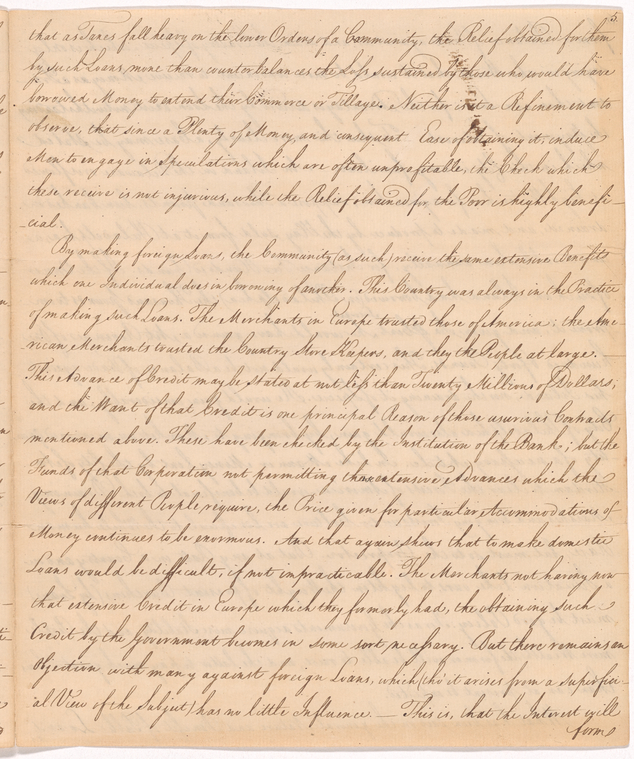 5.
that as Taxes fall heavy on the lower Orders of a Community, the Relief obtained for them
by such Loans more than counterbalances the Loss sustained by those who would have
borrowed Money to extend their Commerce or Tillage. Neither is it a Refinement to
observe, that since a Plenty of Money, and consequent Ease of obtaining it, induce
Men to engage in Speculations which are often unprofitable, the Check which
these receive is not injurious, while the Relief obtained for the Poor is highly benefi-
-cial.
By making foreign Loans, the Community (as such) receive the same extensive Benefits
which one Individual does in borrowing of another. This Country was always in the Practice
of making such Loans. The Merchants in Europe trusted those of America; the Ame-
rican Merchants trusted the Country Store Keepers, and they the People at large. —
This Advance of Credit may be stated at not less than Twenty Millions of Dollars;
and the Want of that Credit is one principal Reason of those usurious Contracts
mentioned above. These have been checked by the Institution of the Bank; but the
Funds of that Corporation not permitting those extensive Advances which the
Views of different People require, the Price given for particular Accommodations of
Money continues to be enormous. And that again shows that to make domestic
Loans would be difficult, if not impracticable. The Merchants not having now
that extensive Credit in Europe which they formerly had, the obtaining such
Credit by the Government becomes in some sort necessary. But there remains an
Objection with many against foreign Loans, which (tho' it arises from a superfici-
al View of the Subject) has no little Influence. — This is, that the Interest will
form